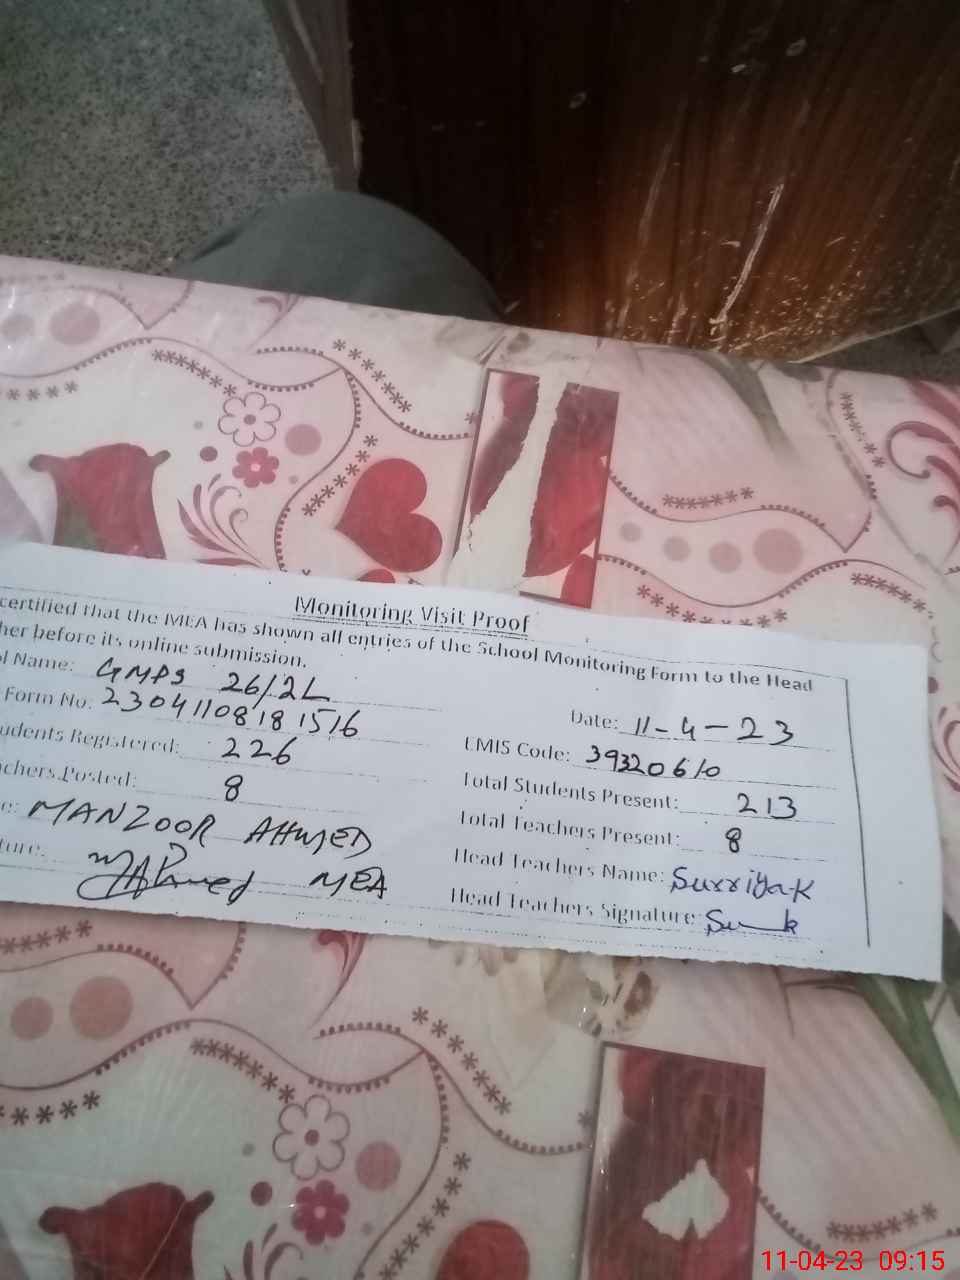 Monitoring Visit Proof
certified that the MEA has shown all entries of the School Monitoring Form to the Head
her before its online submission.
l Name: GMPS 26/2L
Date: 11-4-23
Form No: 2304110818 1516
EMIS Code: 39320610
udents Registered: 226
Total Students Present: 213
chers Posted: 8
Total Teachers Present: 8
e: MANZOOR AHMED
Head Teachers Name: Surriya K
ture: MAhmed MEA
Head Teachers Signature:
11-04-23 09:15